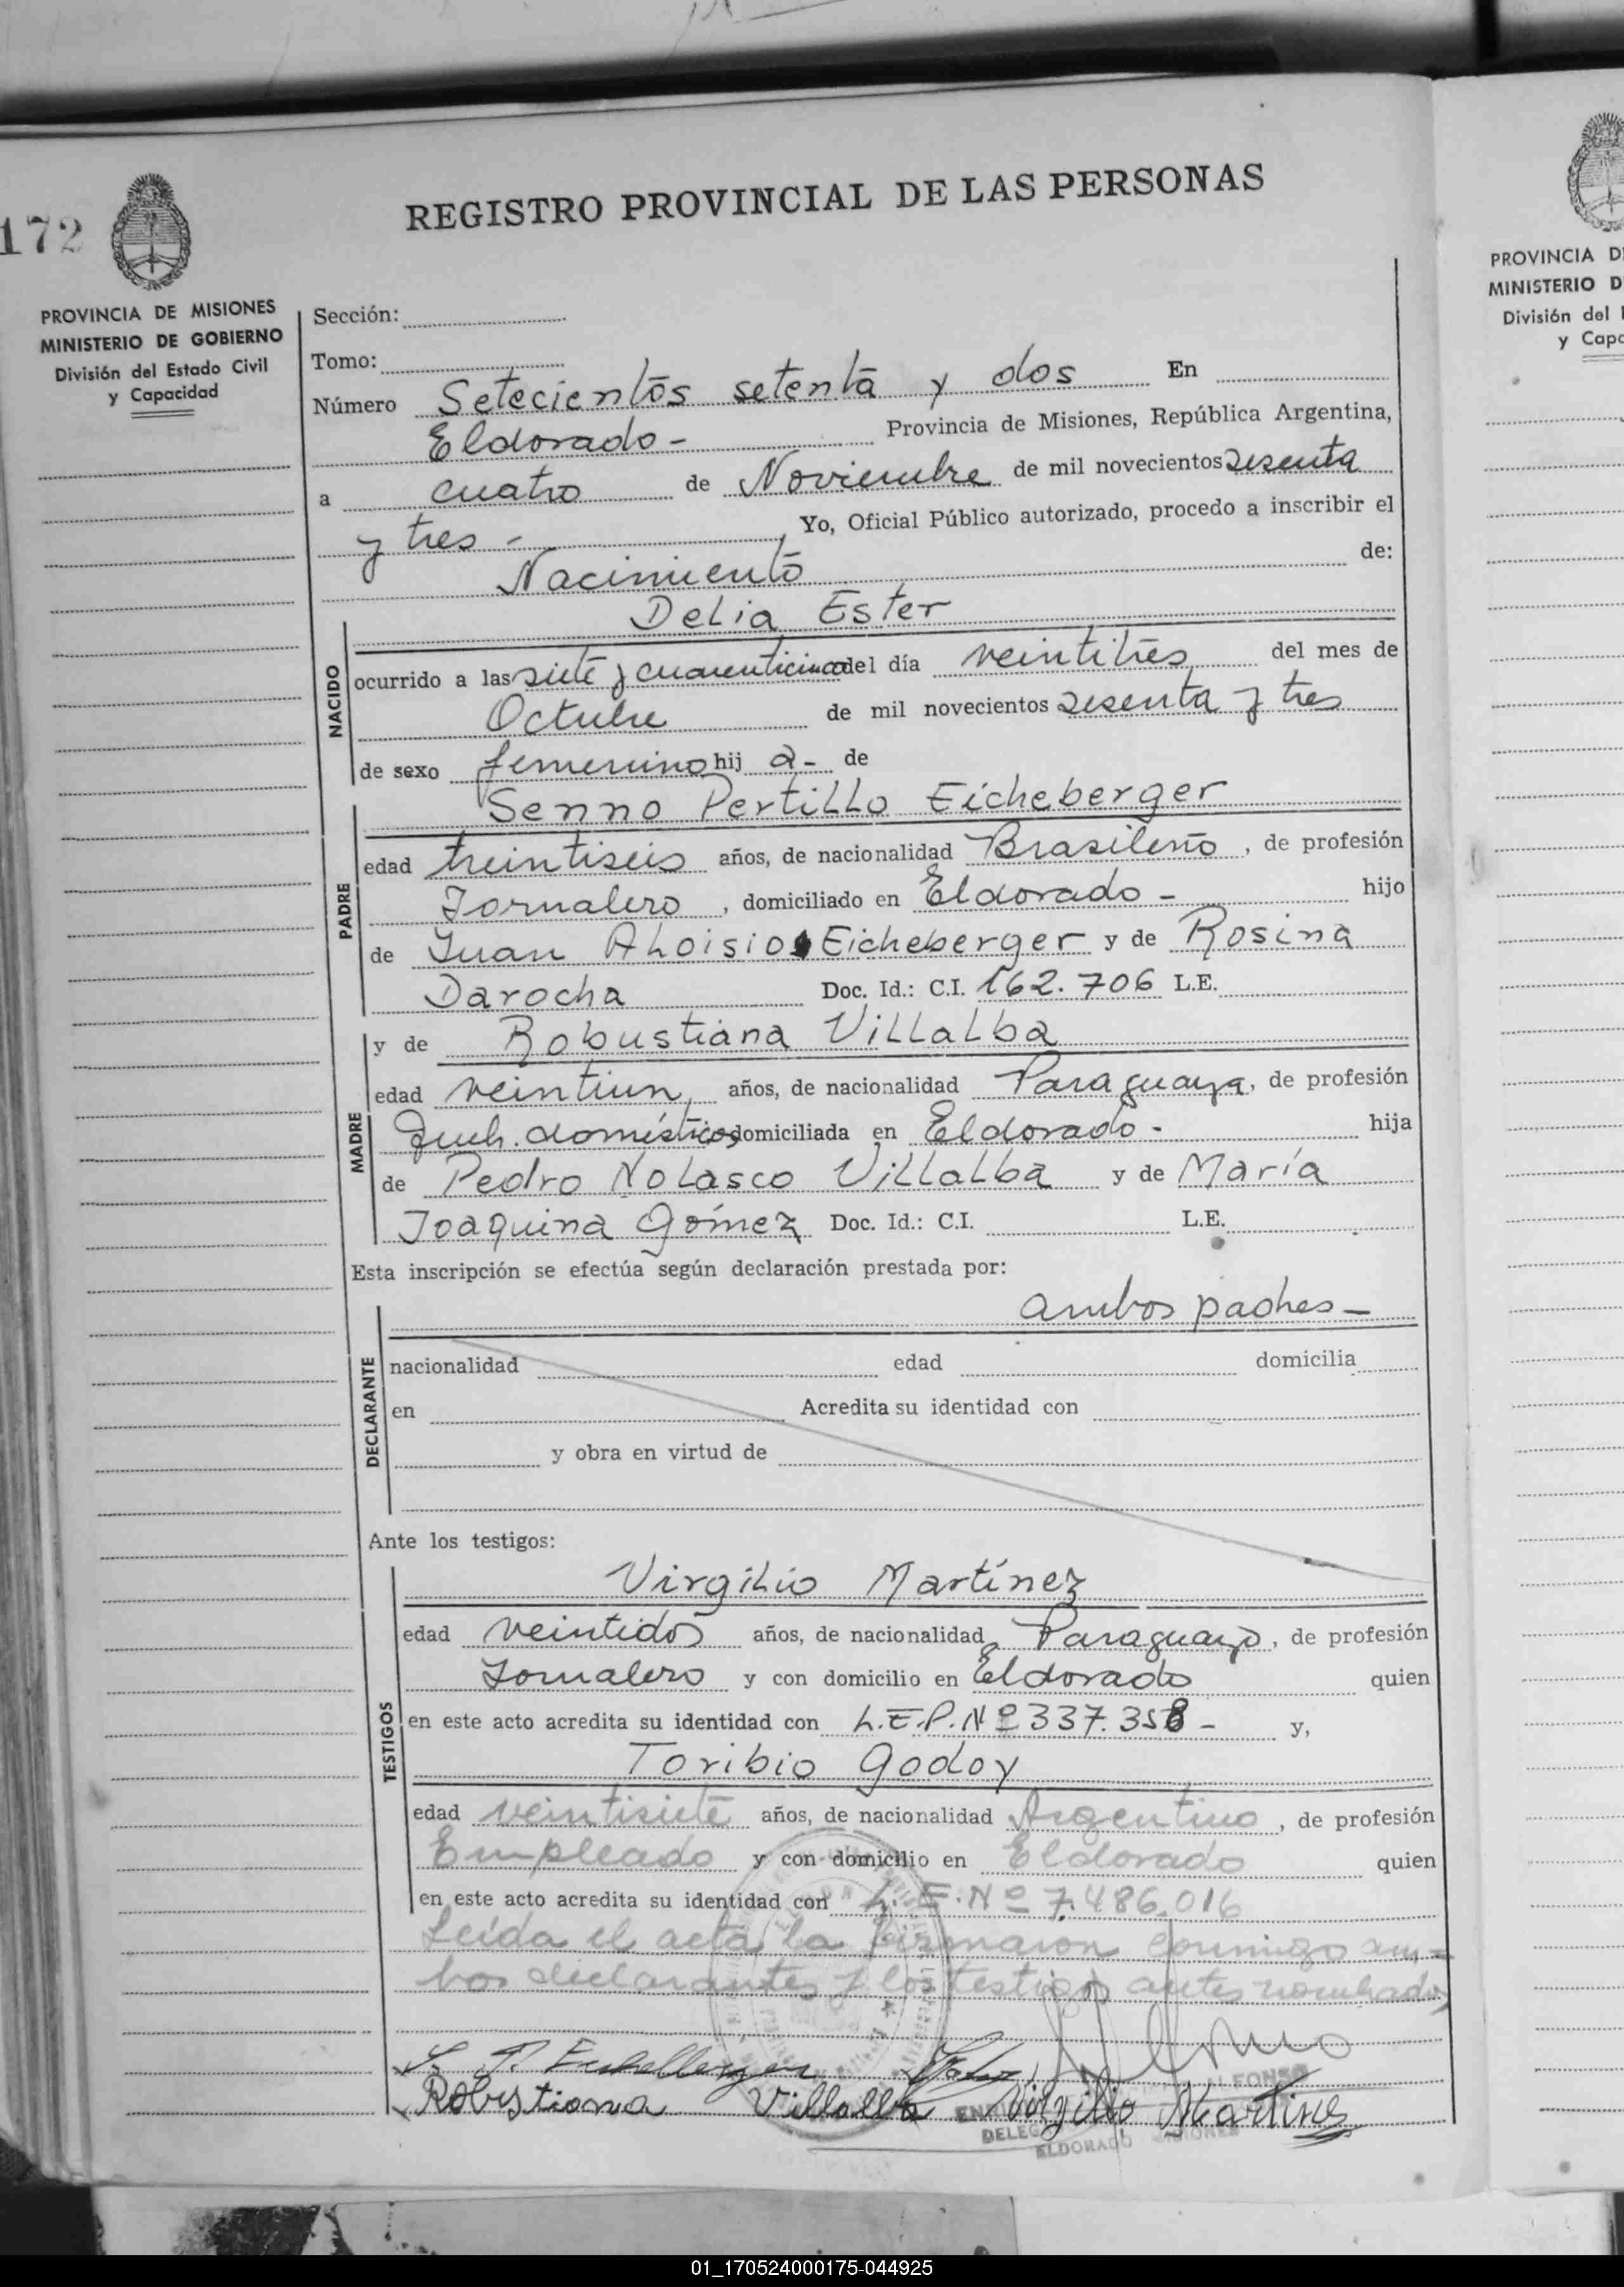 172
REGISTRO PROVINCIAL DE LAS PERSONAS
PROVINCIA DE MISIONES
MINISTERIO DE GOBIERNO
División del Estado Civil
y Capacidad
Sección:
Tomo:
Número Setecientos setenta y dos En
Eldorado - Provincia de Misiones, República Argentina,
a cuatro de Noviembre de mil novecientos sesenta
y tres - , Yo, Oficial Público autorizado, procedo a inscribir el
Nacimiento de:
NACIDO
Delia Ester
ocurrido a las siete y cuarenticinco del día veintitrés del mes de
Octubre de mil novecientos sesenta y tres
de sexo femenino hij a - de
PADRE
Senno Pertillo Eicheberger
edad treintiseis años, de nacionalidad Brasileño, de profesión
Jornalero, domiciliado en Eldorado - hijo
de Juan Aloisio Eicheberger y de Rosina
Darocha Doc. Id.: C.I. 162.706 L.E.
MADRE
y de Robustiana Villalba
edad veintiun, años, de nacionalidad Paraguaya, de profesión
Queh. domésticos domiciliada en Eldorado - hija
de Pedro Nolasco Villalba y de María
Joaquina Gómez Doc. Id.: C.I. L.E.
Esta inscripción se efectúa según declaración prestada por:
DECLARANTE
ambos padres -
nacionalidad edad domicilia
en Acredita su identidad con
y obra en virtud de
Ante los testigos:
TESTIGOS
Virgilio Martínez
edad veintidos años, de nacionalidad Paraguayo, de profesión
Jornalero y con domicilio en Eldorado quien
en este acto acredita su identidad con L.E.P. Nº 337.358 - y,
Toribio Godoy
edad veintisiete años, de nacionalidad Argentino, de profesión
Empleado y con domicilio en Eldorado quien
en este acto acredita su identidad con L.E. Nº 7.486.016
Leída el acta la firmaron conmigo am-
bos declarantes y los testigos antes nombrados
Robustiana Villalba Virgilio Martines
ALFONSO
ELDORADO MISIONES
PROVINCIA D
MINISTERIO D
División del
y Capa
01_170524000175-044925